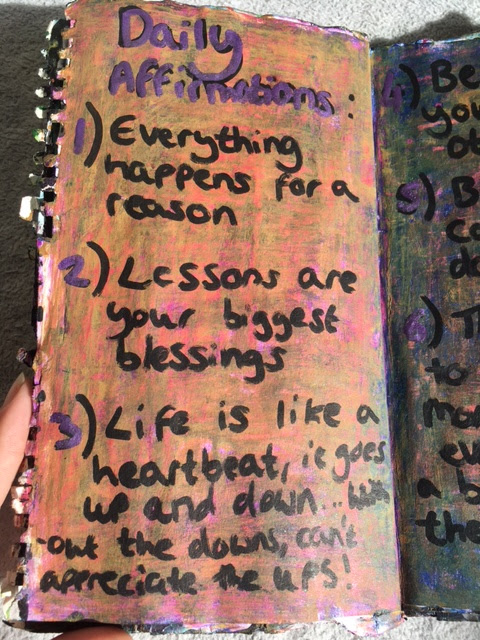 Daily
Affirmations:
1) Everything
happens for a
reason
2) Lessons are
your biggest
blessings
3) Life is like a
heartbeat, it goes
up and down... with
-out the downs, can't
appreciate the UPS!
4) Be
you
ot
5) B
co
do
6) T
to
mor
eve
a b
the